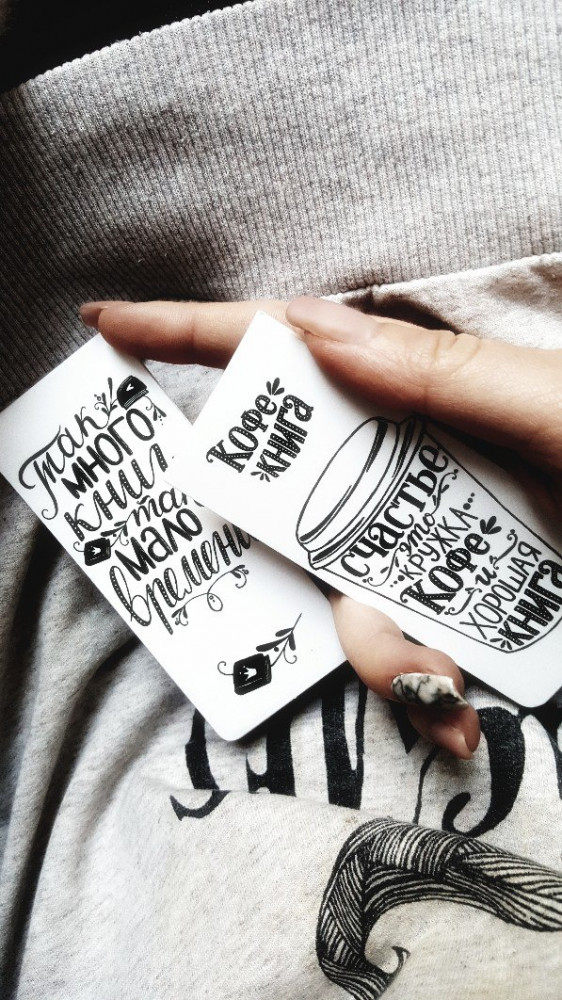 Так
много
книг
так
мало
времени
Кофе
книга
Счастье
это
кружка...
Кофе
и
хорошая
книга